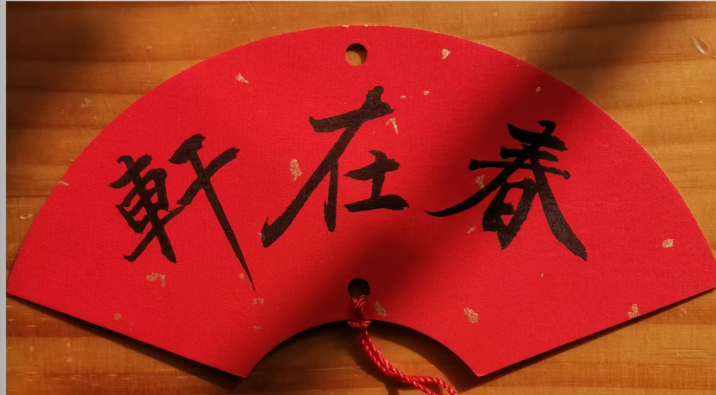 春在軒